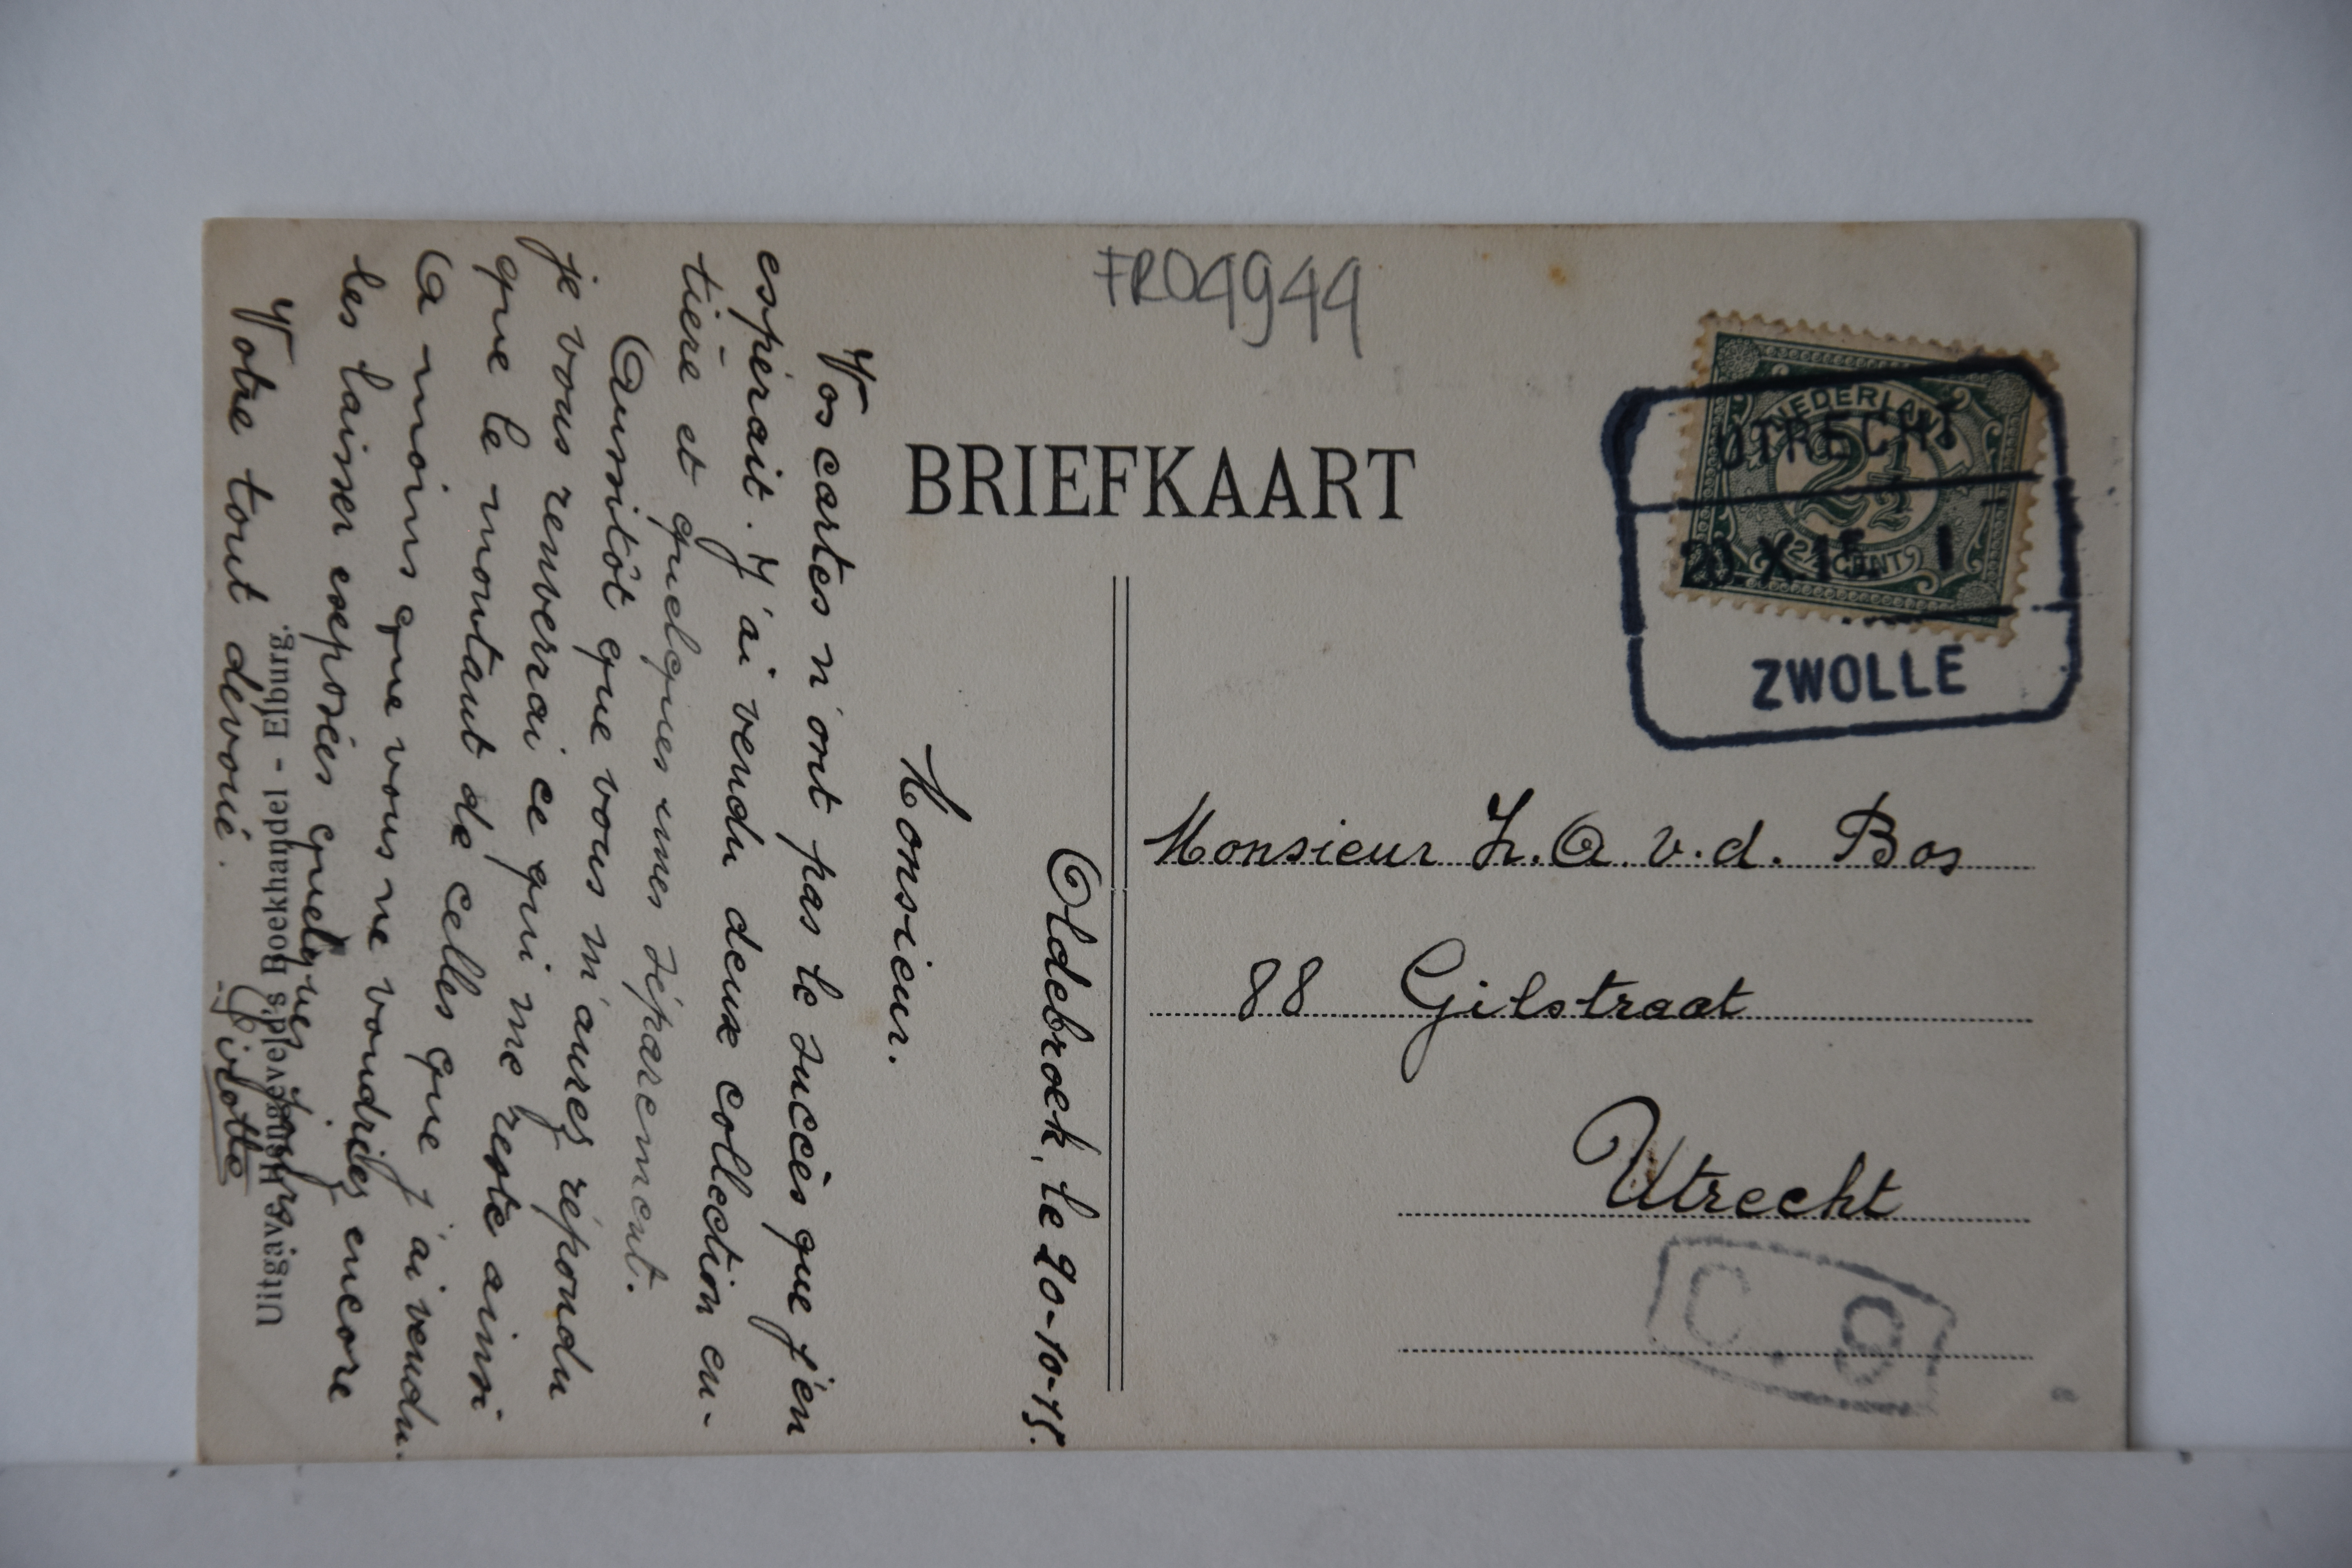 FRO4944
BRIEFKAART
NEDERLAND
2½
2½ CENT
UTRECHT
20.X.15. 1
ZWOLLE
Monsieur L.A. v.d. Bos
88 Gilstraat
Utrecht
C. 9
Oldebroek, le 20-10-15.
Monsieur.
Vos cartes n'ont pas le succès que j'en
espérait. J'ai vendu deux collection en-
tière et quelques unes séparement.
Aussitôt que vous m'aurez répondu
je vous renverrai ce qui me reste ainsi
que le montant de celles que j'ai vendu.
A moins que vous ne voudriez encore
les laisser exposées quelques jours
Votre tout dévoué.
Uitgave: Hoogeveld's Boekhandel - Elburg.